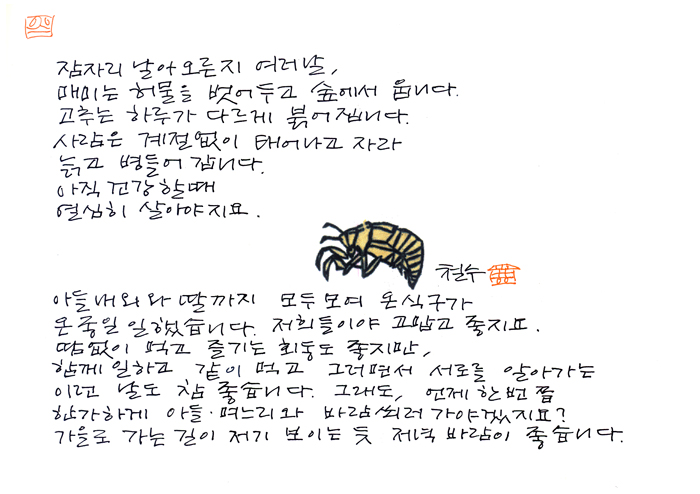 잠자리 날아오른지 여러날,
매미는 허물을 벗어두고 숲에서 웁니다.
고추는 하루가 다르게 붉어집니다.
사람은 계절없이 태어나고 자라
늙고 병들어 갑니다.
아직 건강할때
열심히 살아야지요.
철수
아들내외와 딸까지 모두모여 온식구가
온종일 일했습니다. 저희들이야 고맙고 좋지요.
땀없이 먹고 즐기는 회동도 좋지만,
함께 일하고 같이 먹고 그러면서 서로를 알아가는
이런 날도 참 좋습니다. 그래도, 언제 한번쯤
한가하게 아들·며느리와 바람쐬러 가야겠지요?
가을로 가는 길이 저기 보이는 듯 저녁 바람이 좋습니다.